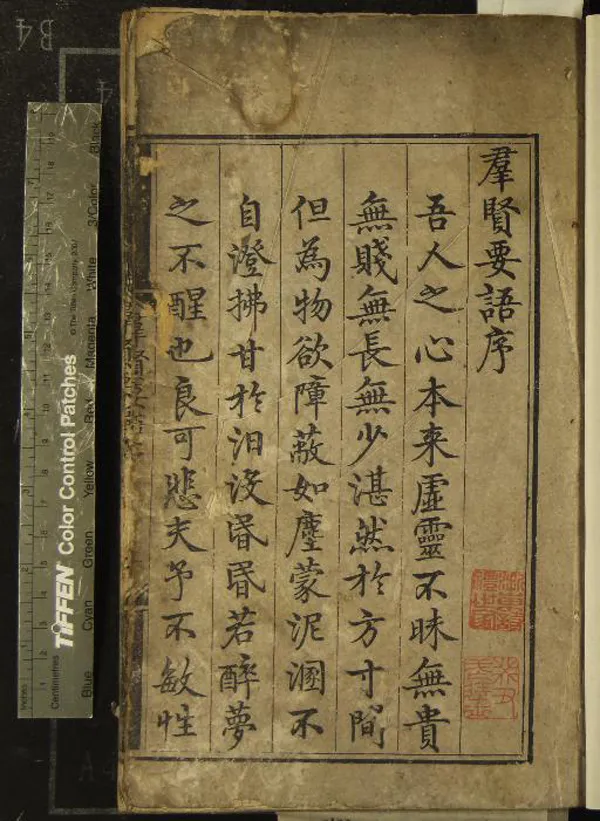 羣賢要語序
吾人之心本来虛靈不昧無貴
無賤無長無少湛然於方寸間
但為物欲障蔽如塵蒙泥溷不
自澄拂甘於汨没昬昬若醉夢
之不醒也良可悲夫予不敏性
B4
TIFFEN Color Control Patches
© The Tiffen Company, 2007
Inches
Centimetres
Blue
Cyan
Green
Yellow
Red
Magenta
White
3/Color
Black